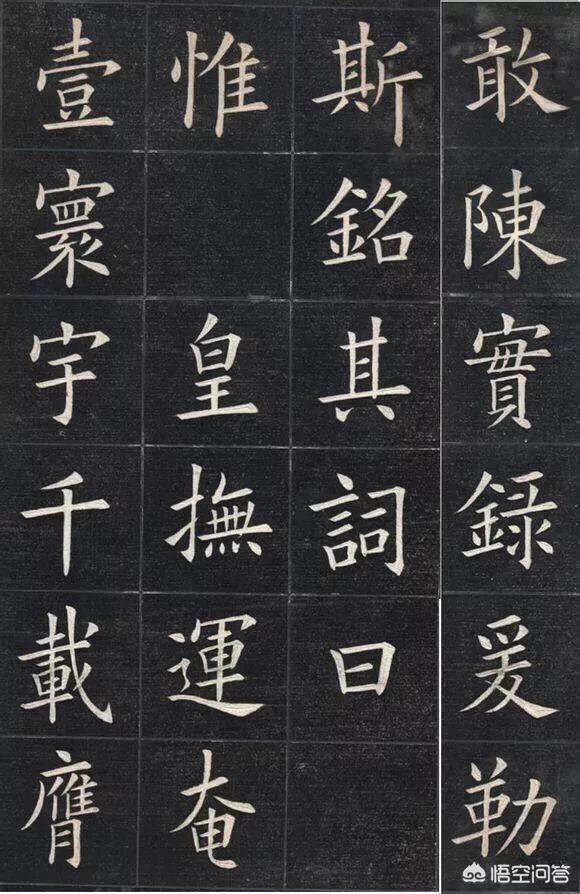 敢陳實錄爰勒
斯銘其詞曰
惟皇撫運奄
壹寰宇千載膺
悟空问答